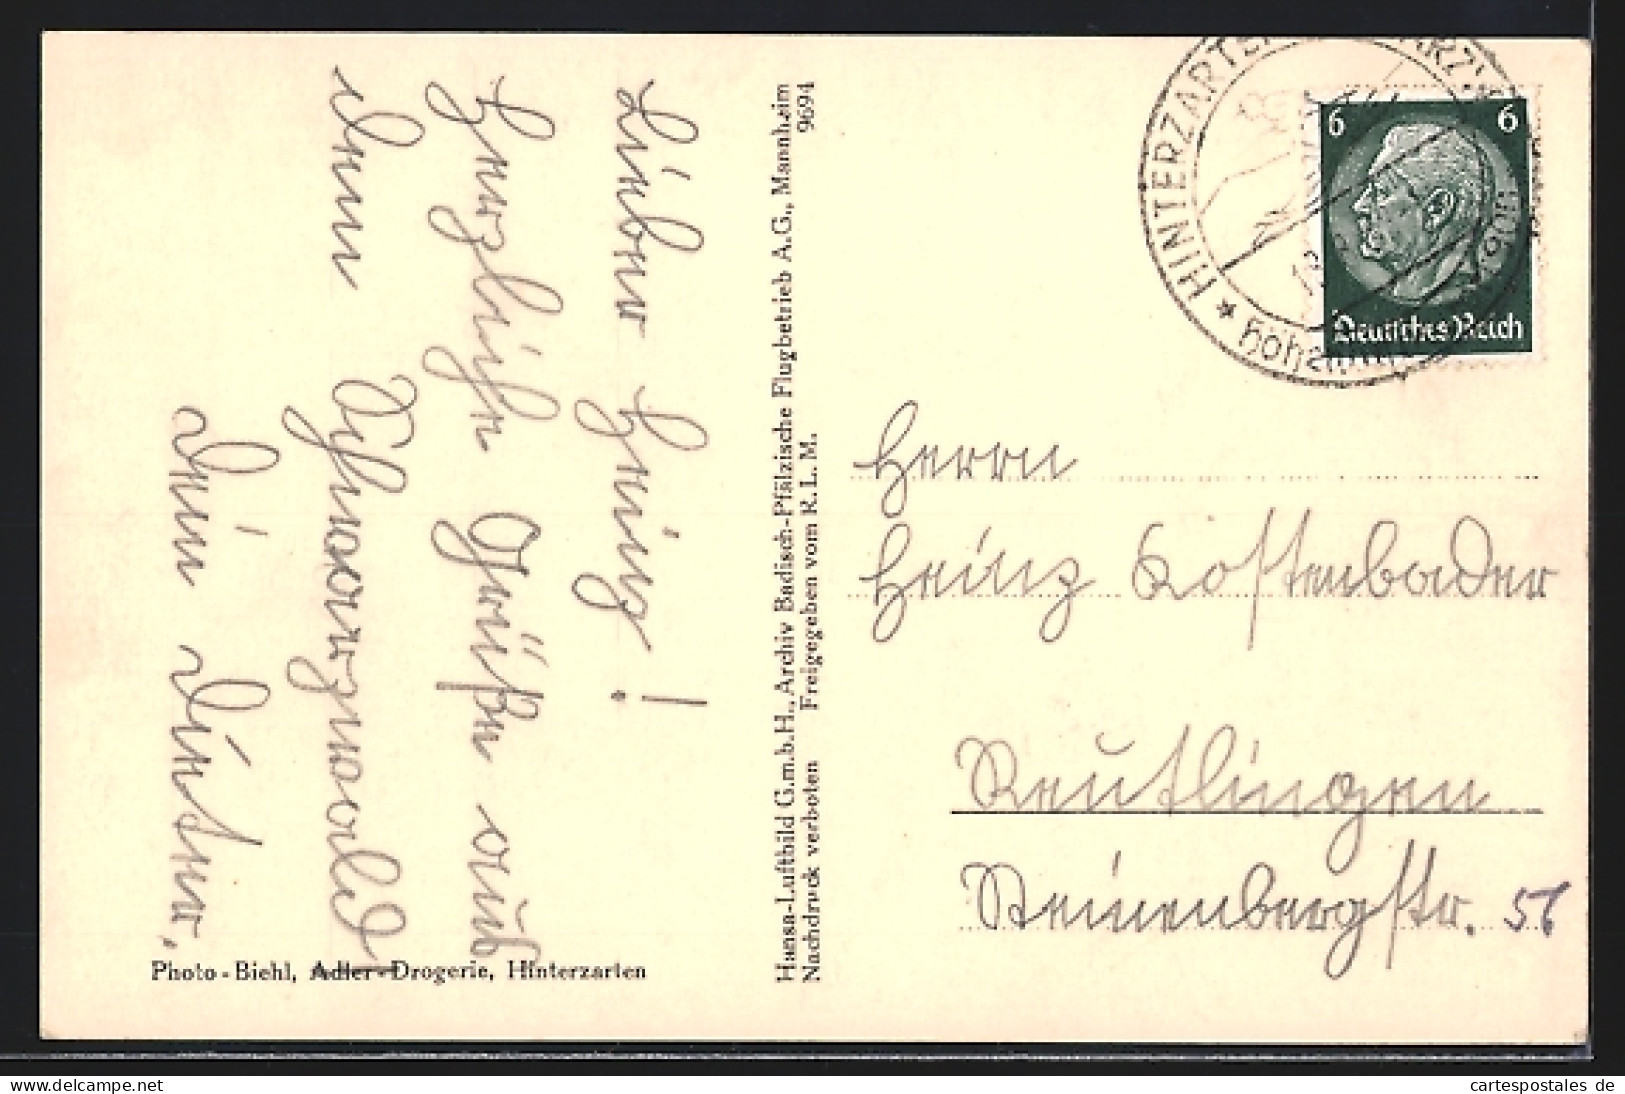 Lieber Heinz!
Herzliche Grüße aus
dem Schwarzwald
Dein Dieter.
Photo-Biehl, Adler-Drogerie, Hinterzarten
Hansa-Luftbild G.m.b.H., Archiv Badisch-Pfälzische Flugbetrieb A.G., Mannheim
Nachdruck verboten Freigegeben vom R.L.M. 9694
HINTERZARTEN
6 6
Deutsches Reich
Herrn
Heinz Kostenbader
Reutlingen
Steinenbergstr. 56
cartespostales.de
cartespostales de